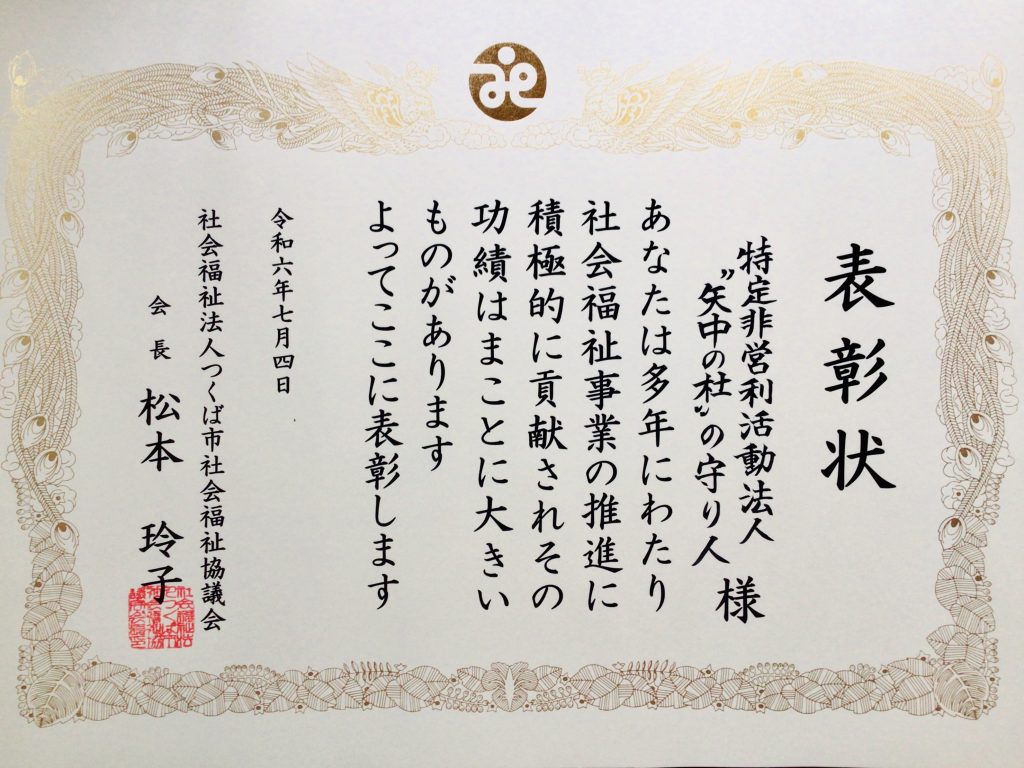 表彰状
特定非営利活動法人
〝矢中の杜〟の守り人 様
あなたは多年にわたり
社会福祉事業の推進に
積極的に貢献されその
功績はまことに大きい
ものがあります
よってここに表彰します
令和六年七月四日
社会福祉法人つくば市社会福祉協議会
会長 松本 玲子